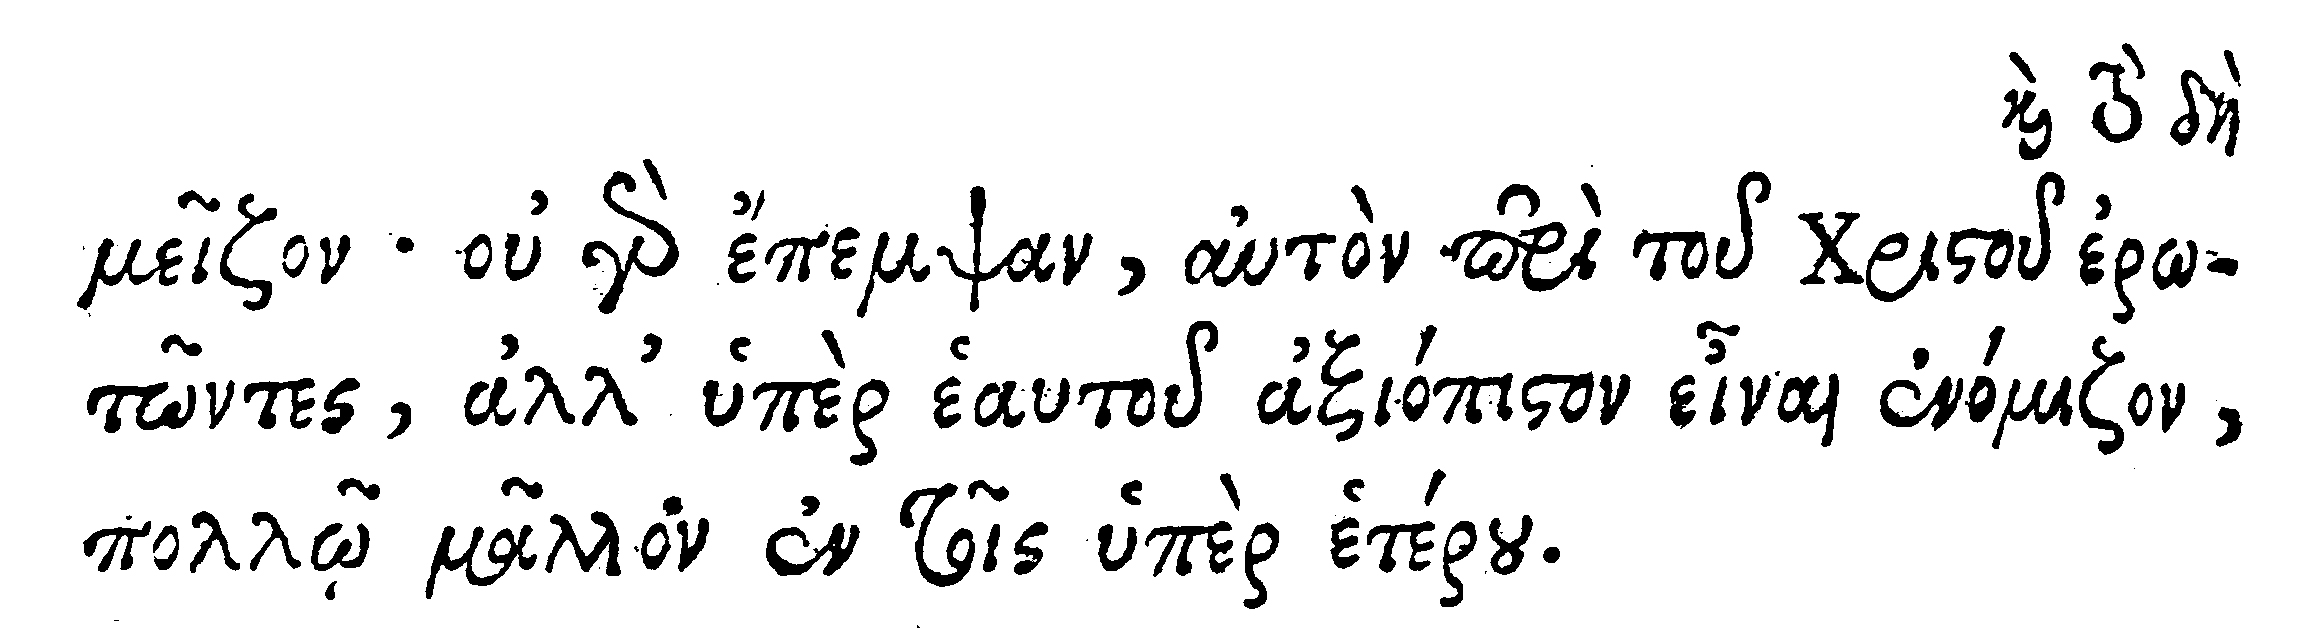 καὶ τὸ δὴ
μεῖζον· οὐ γὰρ ἔπεμψαν, αὐτὸν περὶ τοῦ Χριστοῦ ἐρω-
τῶντες, ἀλλ’ ὑπὲρ ἑαυτοῦ ἀξιόπιστον εἶναι ἐνόμιζον,
πολλῷ μᾶλλον ἐν τοῖς ὑπὲρ ἑτέρου.